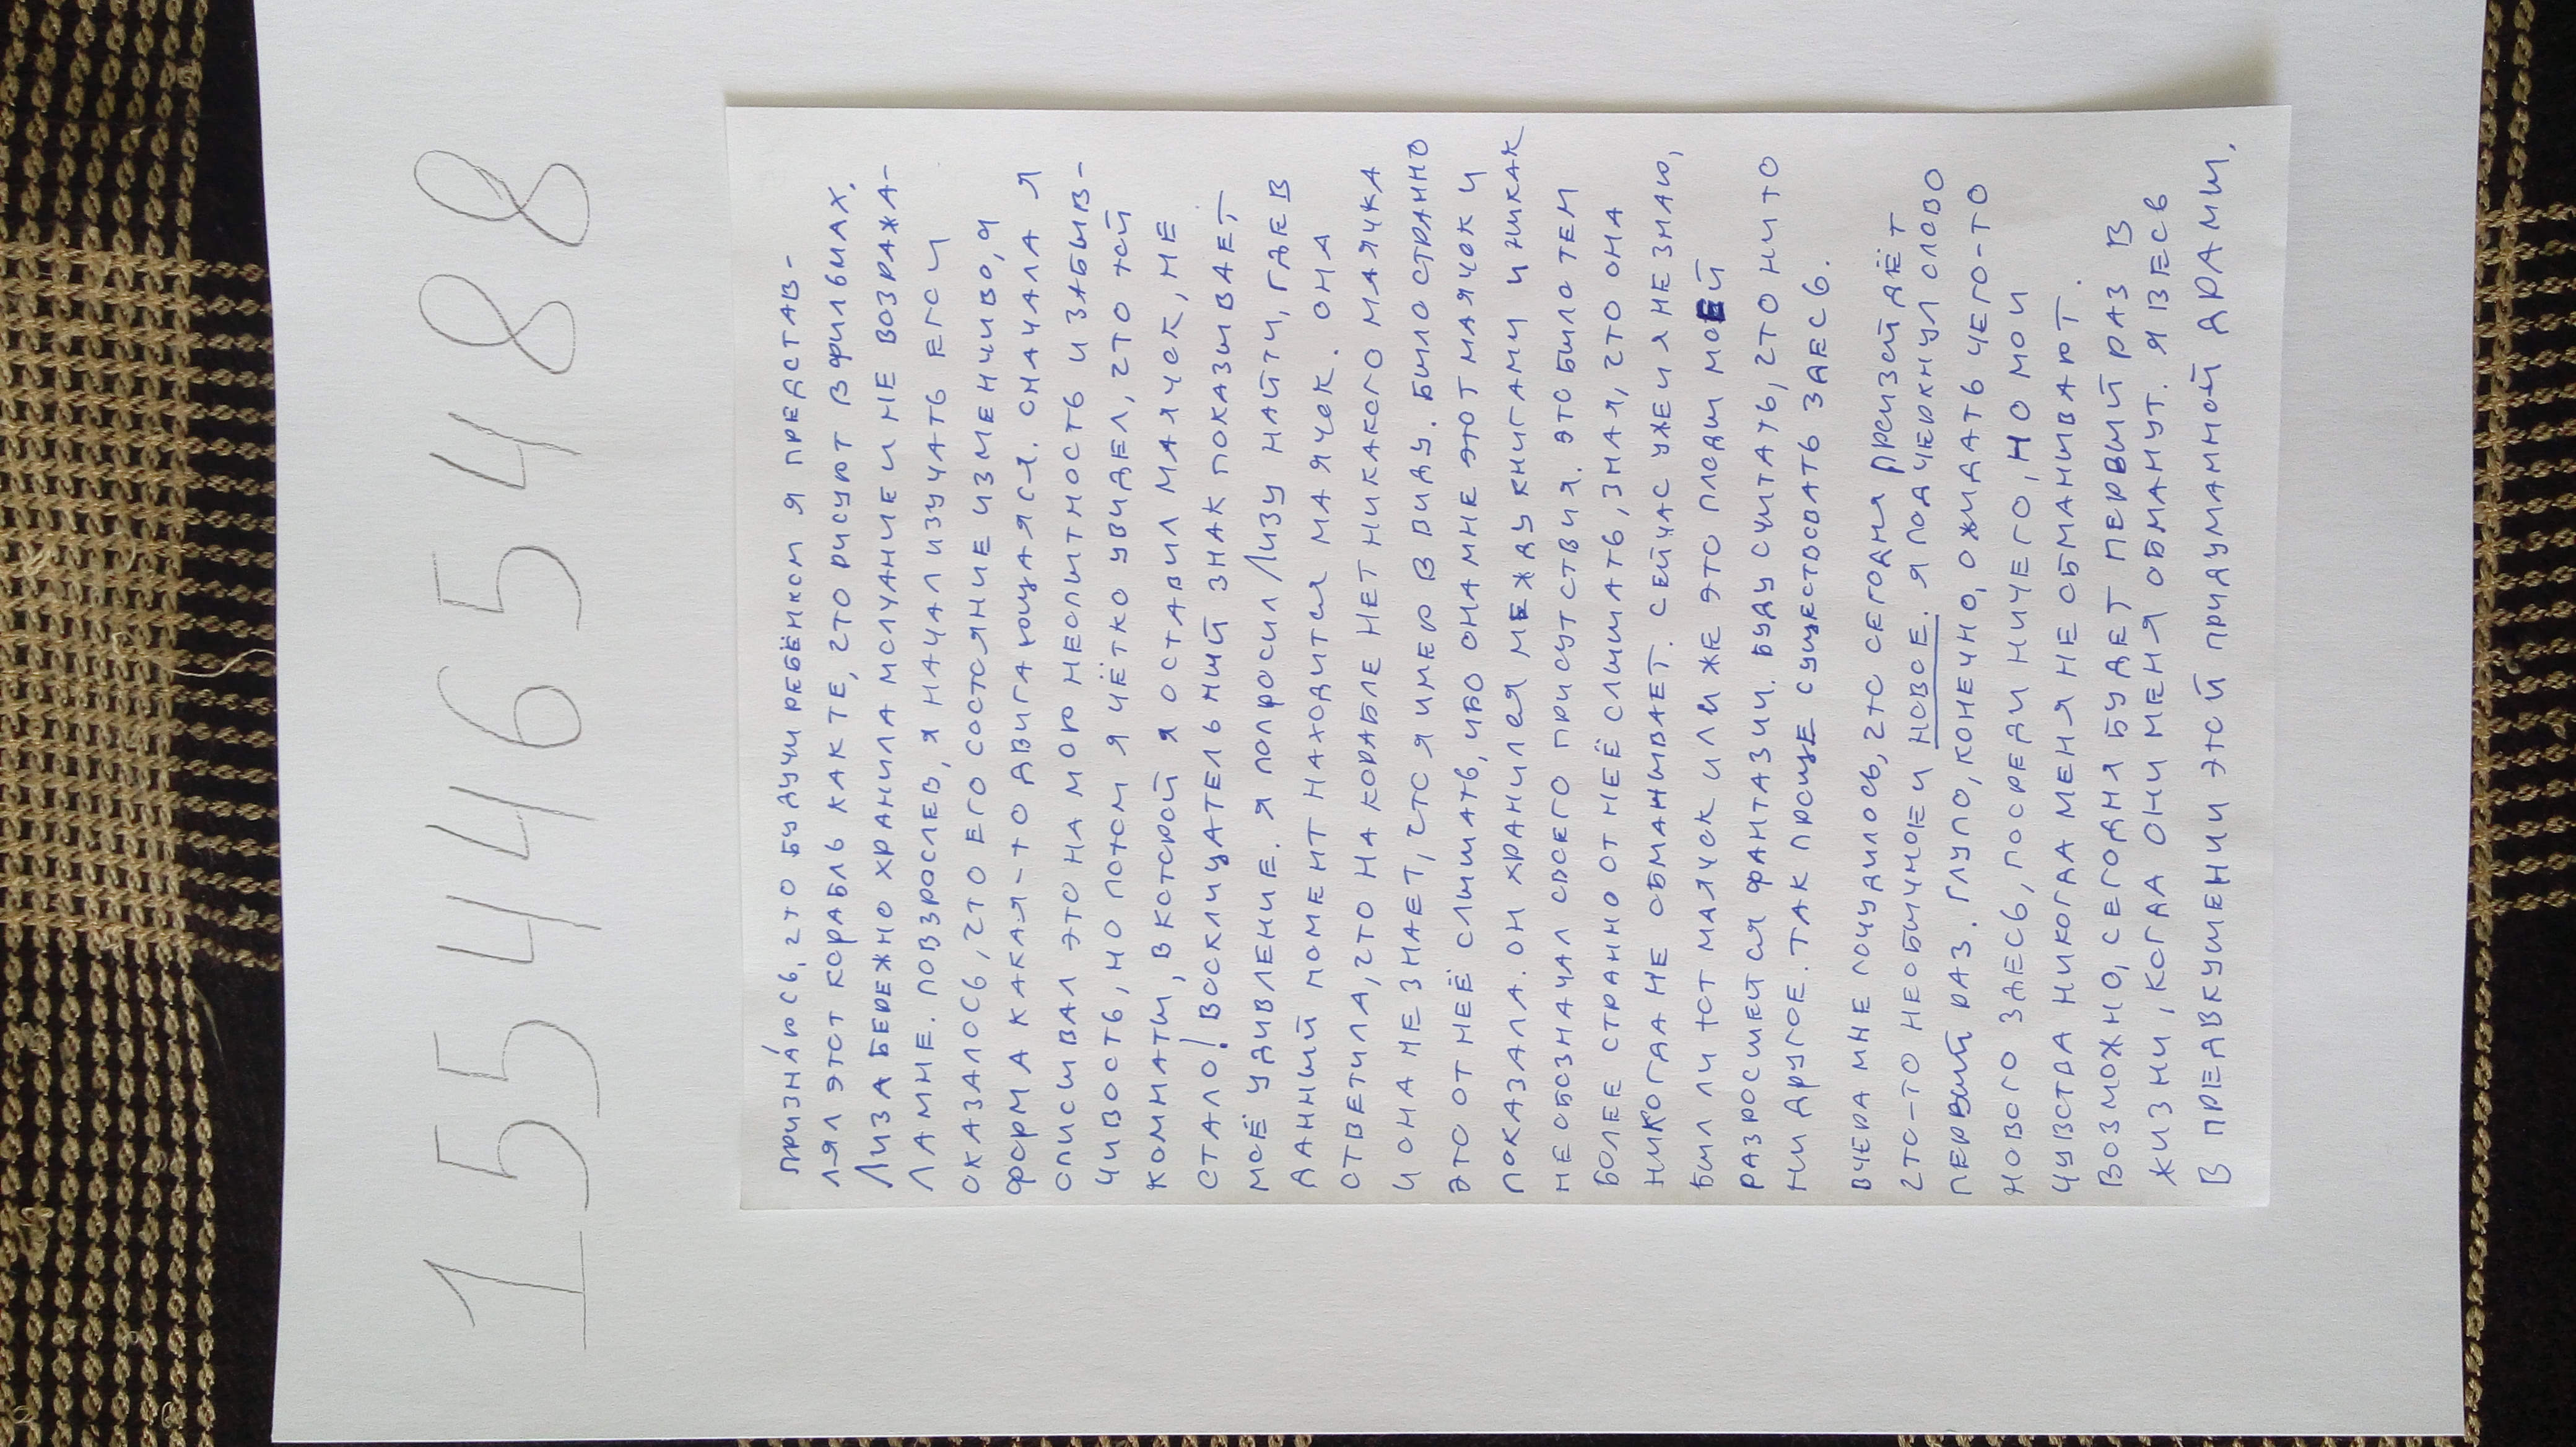 155465488
признáюсь, что будучи ребёнком я представ-
лял этот корабль как те, что рисуют в фильмах.
Лиза бережно хранила молчание и не возража-
ла мне. повзрослев, я начал изучать его и
оказалось, что его состояние изменчиво, я
форма какая-то двигающаяся. сначала я
списывал это на мою неопытность и забыв-
чивость, но потом я чётко увидел, что той
комнаты, в которой я оставил маячок, не
стало! восклицательный знак показывает
моё удивление. я попросил Лизу найти, где в
данный момент находится маячок. она
ответила, что на корабле нет никакого маячка
и она не знает, что я имею в виду. было странно
это от неё слышать, ибо она мне этот маячок и
показала. он хранился между книгами и никак
не обозначал своего присутствия. это было тем
более странно от неё слышать, зная, что она
никогда не обманывает. сейчас уже и я не знаю,
был ли тот маячок или же это плоды моей
разросшейся фантазии. буду считать, что ни то
ни другое. так проще существовать здесь.
вчера мне почудилось, что сегодня произойдёт
что-то необычное и новое. я подчеркнул слово
первый раз. глупо, конечно, ожидать чего-то
нового здесь, посреди ничего, но мои
чувства никогда меня не обманывают.
возможно, сегодня будет первый раз в
жизни, когда они меня обманут. я весь
в предвкушении этой придуманной драмы.